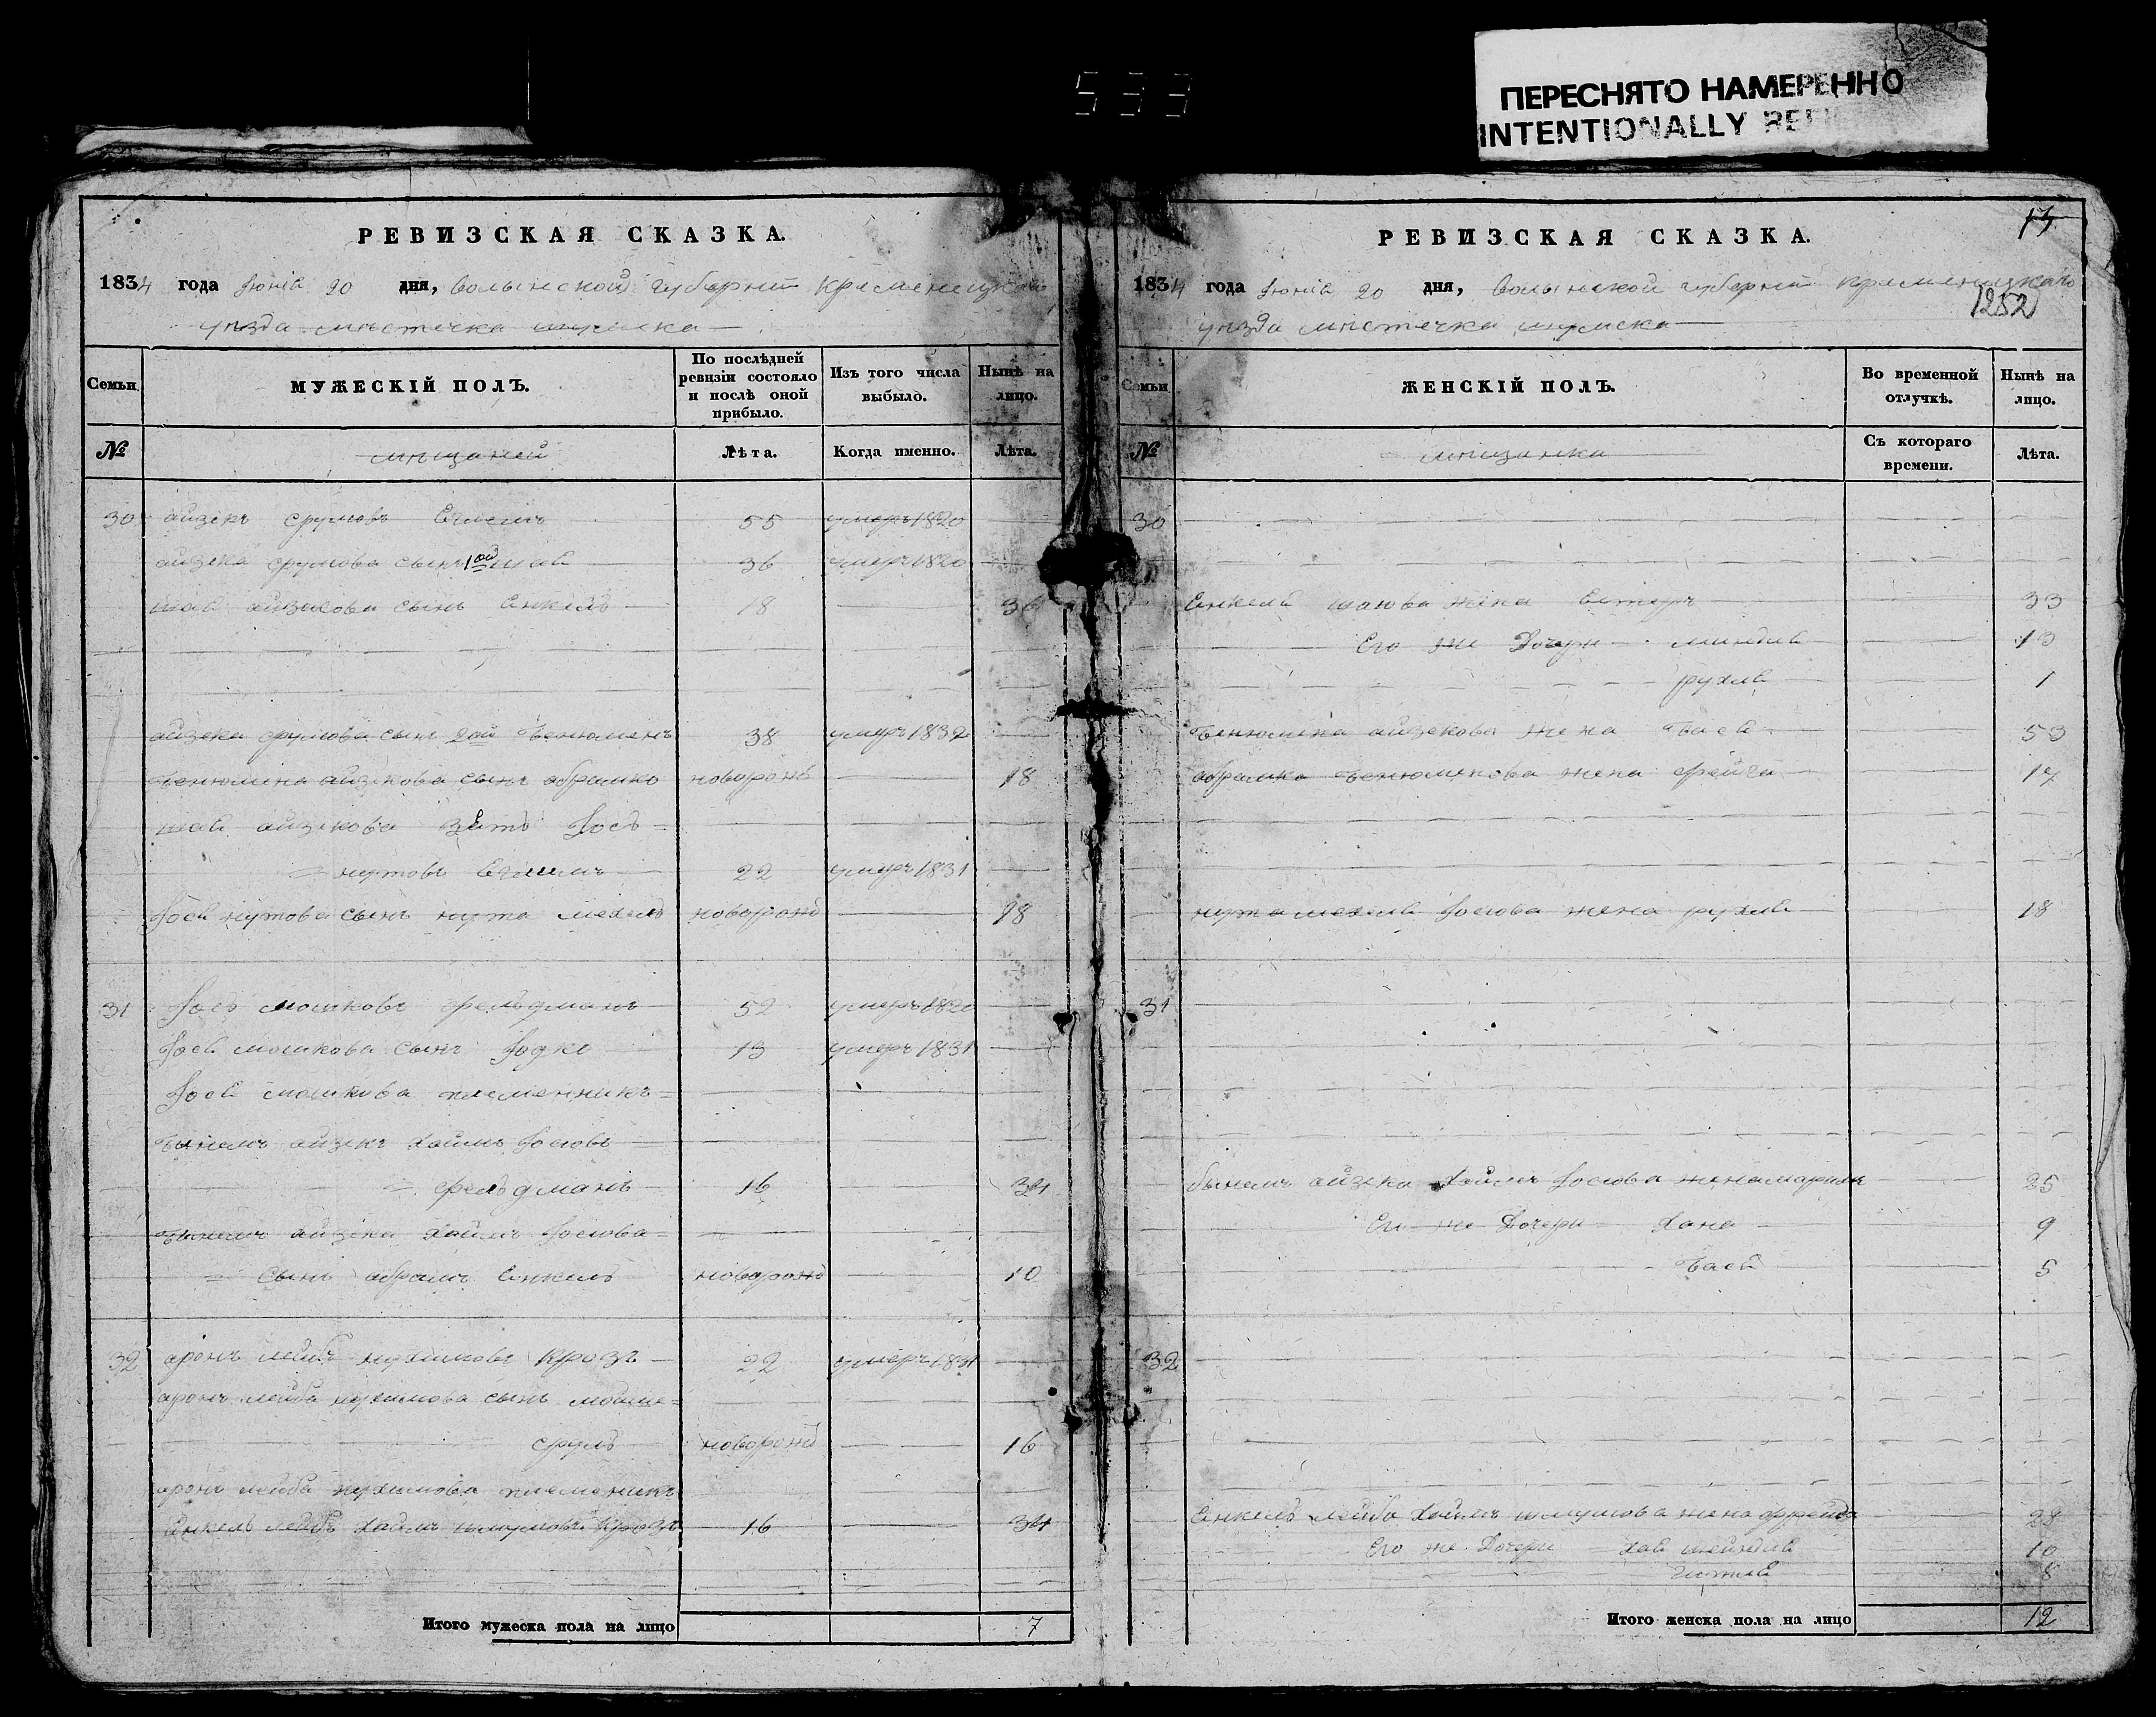 533
ПЕРЕСНЯТО НАМЕРЕННО
INTENTIONALLY
РЕВИЗСКАЯ СКАЗКА.
1834 года Іюнія 20 дня, Волынской губерніи Кременецкаго
уѣзда мѣстечка шумска
Семьи. МУЖЕСКІЙ ПОЛЪ. По послѣдней ревизіи состояло и послѣ оной прибыло. Изъ того числа выбыло. Нынѣ на лицо.
№ мѣщаней Лѣта. Когда именно. Лѣта.
30 айзикъ срумовъ 55 умеръ 1820
айзика срумова сынъ 1ой шая 36 умеръ 1820
шаи айзикова сынъ Енкель 18
айзека срумова сынъ 2ой Бенюменъ 38 умеръ 1832
Бенюмина айзекова сынъ абрамко новорожд 18
шаи айзекова зять Іось
нутовъ 22 умеръ 1831
Іося нутова сынъ нута мехель новорожд 18
31 Іось мошковъ фельдманъ 52 умеръ 1820
Іося мошкова сынъ Іодко 13 умеръ 1831
Іося мошкова племенникъ
Бынемъ айзикъ хаимъ Іосіовъ
фельдманъ 16
Бынемъ айзека хаимъ Іосіова
сынъ абрамъ Енкель новорожд 10
32 аронъ лейбъ нухимовъ Крозъ 22 умеръ 1831
аронъ лейба нухимова сынъ мошше
сруль новорожд 16
аронъ лейба нухимова племеникъ
Енкель лейбъ хаимъ шмумовъ Крозъ 16
Итого мужеска пола на лицо 7
13
РЕВИЗСКАЯ СКАЗКА.
1834 года Іюнія 20 дня, Волынской губерніи Кременецкаго
1252
уѣзда мѣстечка шумска
Семьи ЖЕНСКІЙ ПОЛЪ. Во временной отлучкѣ. Нынѣ на лицо.
№ мѣщанки Съ котораго времени. Лѣта.
30
Енкеля шаюва жена Естеръ 33
Его же Дочери миндля 13
рухля 1
Бенюмина айзекова жена Бася 53
абрамка Бенюменова жена фейга 17
нута мехеля Іосіова жена рухля 18
31
Бынемъ айзека хаимъ Іосіова жена 25
Его же Дочери Хана 9
Бася 5
32
Енкель лейба хаимъ шмумова жена фрейда 28
Его же Дочери хая шейндля 10
гитля 8
Итого женска пола на лицо 12